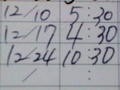 12/10 5:30
12/17 4:30
12/24 10:30
/ :